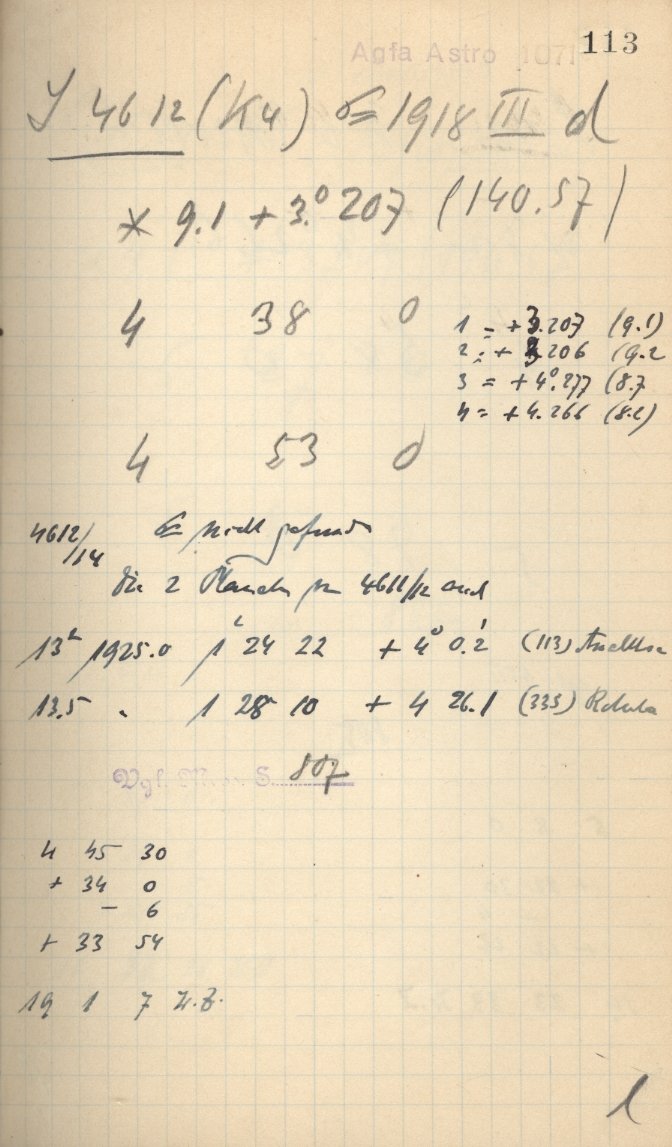 113
Agfa Astro 1071
J 4612 (K4) 1918 III d
* 9.1 + 3.°207 (140.57)
4 38 0
1 = + 3.207 (9.1)
2 = + 3.206 (9.2
3 = + 4°.277 (8.7
4 = + 4.266 (8.2)
4 53 0
4612/14 nicht gefunden
Die 2 Planeten 4611/12 sind
13ᵐ 1925.0 1ʰ 24 22 + 4° 0.2' (113) Amalthea
13.5 " 1 28 10 + 4 26.1 (335) Roberta
Vgl. S. 807
4 45 30
+ 34 0
- 6
+ 33 54
19 1 7